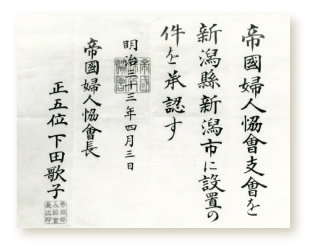 帝國婦人協會支會を
新潟縣新潟市に設置の
件を承認す
明治三十三年四月三日
帝國婦人協會長
正五位下田歌子